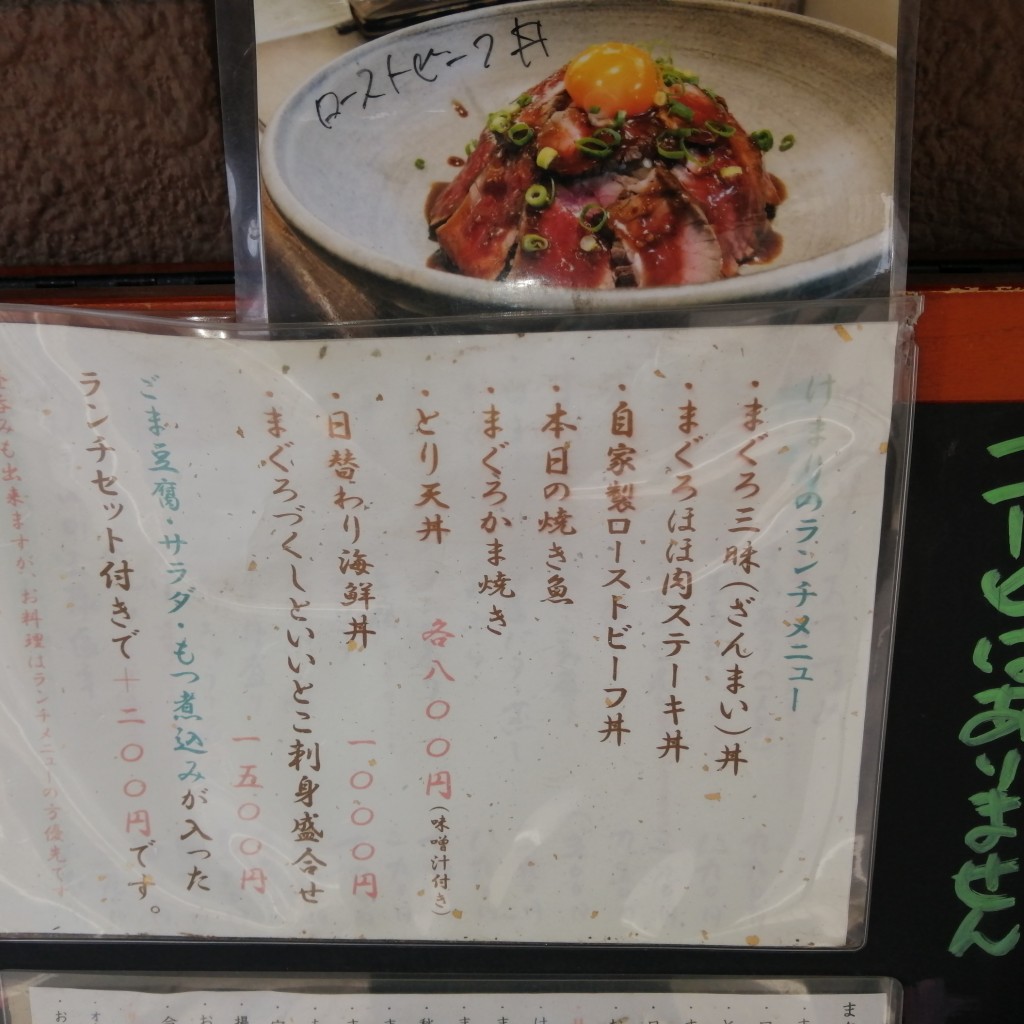 ローストビーフ丼
けまりのランチメニュー
・まぐろ三昧(ざんまい)丼
・まぐろほほ肉ステーキ丼
・自家製ローストビーフ丼
・本日の焼き魚
・まぐろかま焼き
・とり天丼 各八〇〇円(味噌汁付き)
・日替わり海鮮丼 一〇〇〇円
・まぐろづくしといいとこ刺身盛合せ
一五〇〇円
ごま豆腐・サラダ・もつ煮込みが入った
ランチセット付きで十二〇〇円です。
呑みも出来ますが、お料理はランチメニューの方優先です
コーヒーはありません